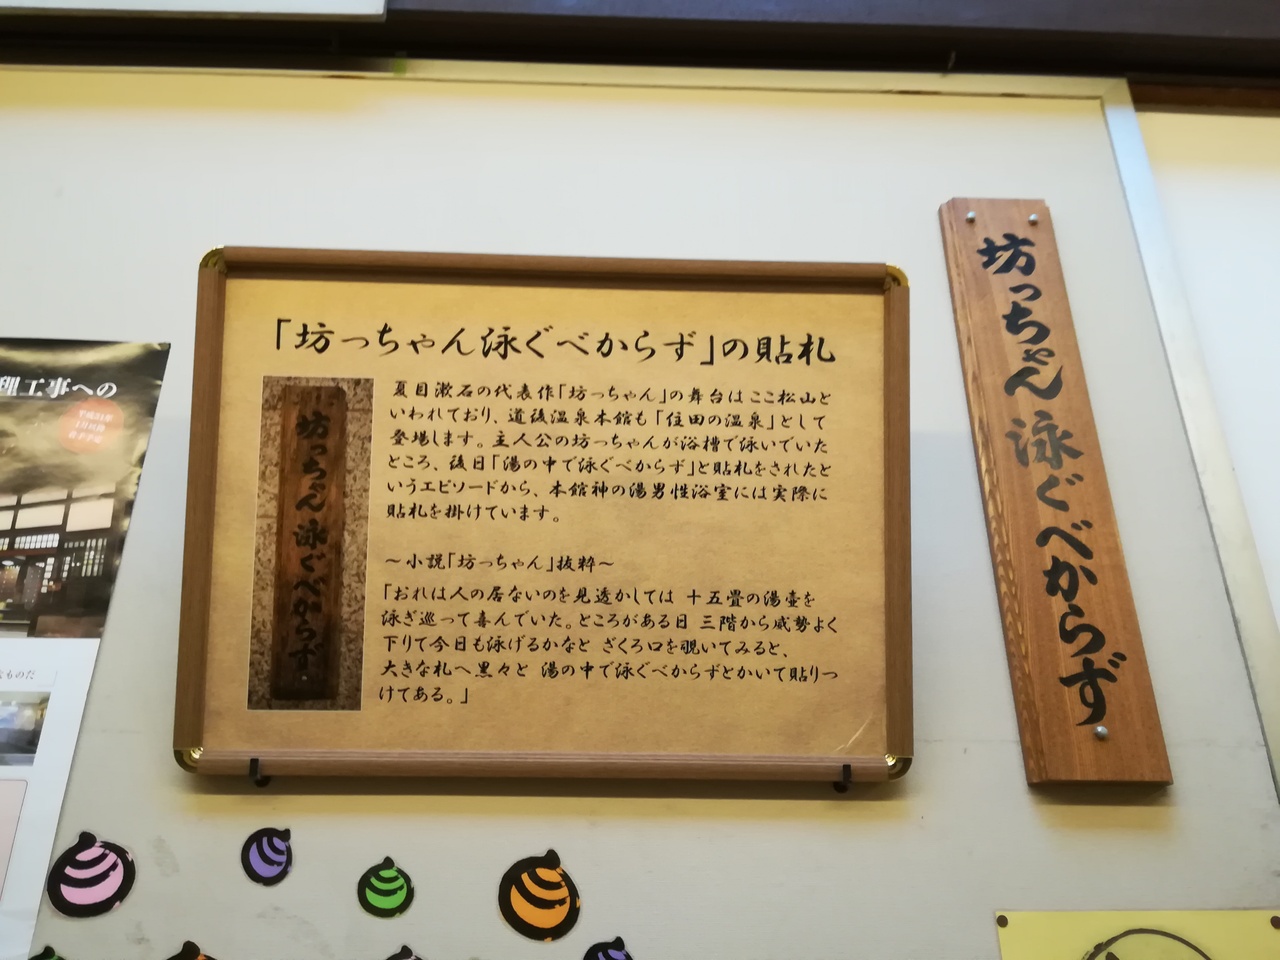 「坊っちゃん泳ぐべからず」の貼札
夏目漱石の代表作「坊っちゃん」の舞台はここ松山と
いわれており、道後温泉本館も「住田の温泉」として
登場します。主人公の坊っちゃんが浴槽で泳いでいた
ところ、後日「湯の中で泳ぐべからず」と貼札をされたと
いうエピソードから、本館神の湯男性浴室には実際に
貼札を掛けています。
～小説「坊っちゃん」抜粋～
「おれは人の居ないのを見透かしては 十五畳の湯壷を
泳ぎ巡って喜んでいた。ところがある日 三階から威勢よく
下りて今日も泳げるかなと ざくろ口を覗いてみると、
大きな札へ黒々と 湯の中で泳ぐべからずとかいて貼りつ
けてある。」
坊っちゃん泳ぐべからず
坊っちゃん泳ぐべからず
理工事への
なものだ